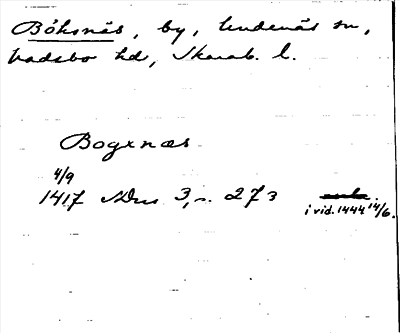 Bőksnäs, by, Undenäs sn,
Vadsbo hd, Skarab. l.
Bogxnæs
4/9
1417 NDus 3, s. 273
i vid. 1444 14/6.